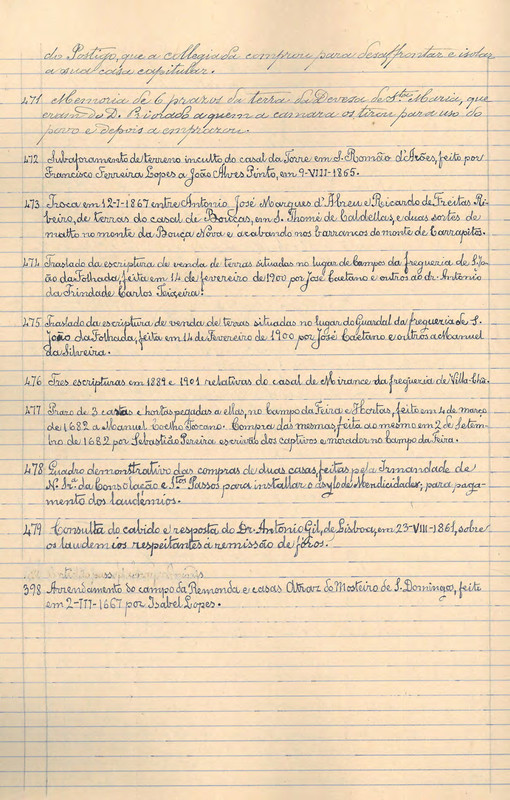 do Postigo, que a collegiada comprou para desaffrontar e isolar
a sua casa capitular.
471 Memoria de 6 prazos da terra da Devesa de Stª Maria, que
eram do D. Priolado a quem a camara os tirou para uso do
povo e depois a emprazou.
472 Subaforamento de terreno inculto do casal da Torre em S. Romão d'Arões, feito por
Francisco Ferreira Lopes a João Alves Pinto, em 9-VIII-1865.
473 Troca em 12-7-1867 entre Antonio José Marques d'Abreu e Ricardo de Freitas Ri-
beiro, de terras do casal de Bouças, em S. Thomé de Caldellas, e duas sortes de
matto no monte da Bouça Nova e acabando nos barrancos do monte de Carrapitos.
474 Traslado da escriptura de venda de terras situadas no lugar de Campos da freguesia de S. Jo-
ão da Folhada, feita em 14 de fevereiro de 1900 por José Caetano e outros ao dr. Antonio
da Trindade Carlos Teixeira.
475 Traslado da escriptura de venda de terras situadas no lugar do Guardal da freguesia de S.
João da Folhada, feita em 14 de Fevereiro de 1900 por José Caetano e outros a Manuel
da Silveira.
476 Tres escripturas em 1889 e 1901 relativas do casal de Mirance da freguesia de
477 Prazo de 3 casas e hortas pegadas a ellas, no campo da Feira e Hortas, feito em 4 de março
de 1682 a Manuel Coelho Compra das mesmas, feita ao mesmo em 2 de Setem-
bro de 1682 por Sebastião Pereira escrivão dos captivos e morador no Campo da Feira.
478 Quadro demonstrativo das compras de duas casas, feitas pela Irmandade de
N. Srª da Consolação e Stos Passos para installar o asylo de Mendicidade; para paga-
mento dos laudémios.
479 Consulta do cabido e resposta do Dr. António Gil, de Lisboa, em 23-VIII-1861, sobre
os laudemios respeitantes á remissão de fóros.
398 Arrendamento do campo da Remonda e casas Atraz do Mosteiro de S. Domingos, feito
em 2-III-1667 por Isabel Lopes.